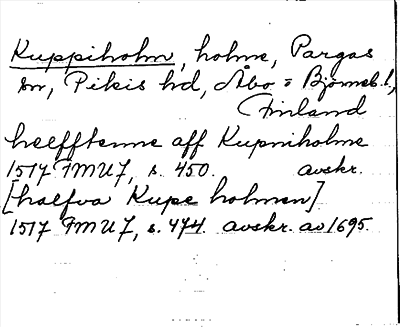 Kuppiholm, holme, Pargas
sn, Pikis hd, Åbo = Björneb. l.,
Finland
helfftenne aff Kupniholme
1517 FMU 7, s. 450. avskr.
[halfva Kupe holmen]
1517 FMU 7, s. 474. avskr. av 1695.